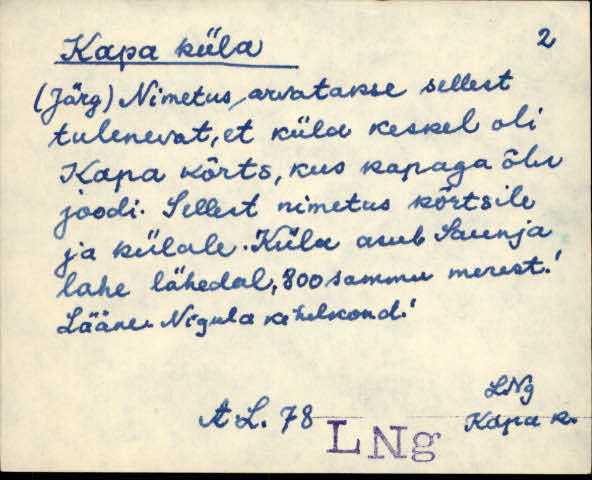 Kapa küla 2
(Järg) Nimetus, arvatakse sellest
tulenevat, et küla keskel oli
Kapa kõrts, kus kapaga õlu
joodi. Sellest nimetus kõrtsile
ja külale. Küla asub Saunja
lahe lähedal, 800 sammu merest.
Lääne-Nigula kihelkond.
LNg
A L. 78 LNg Kapa k.